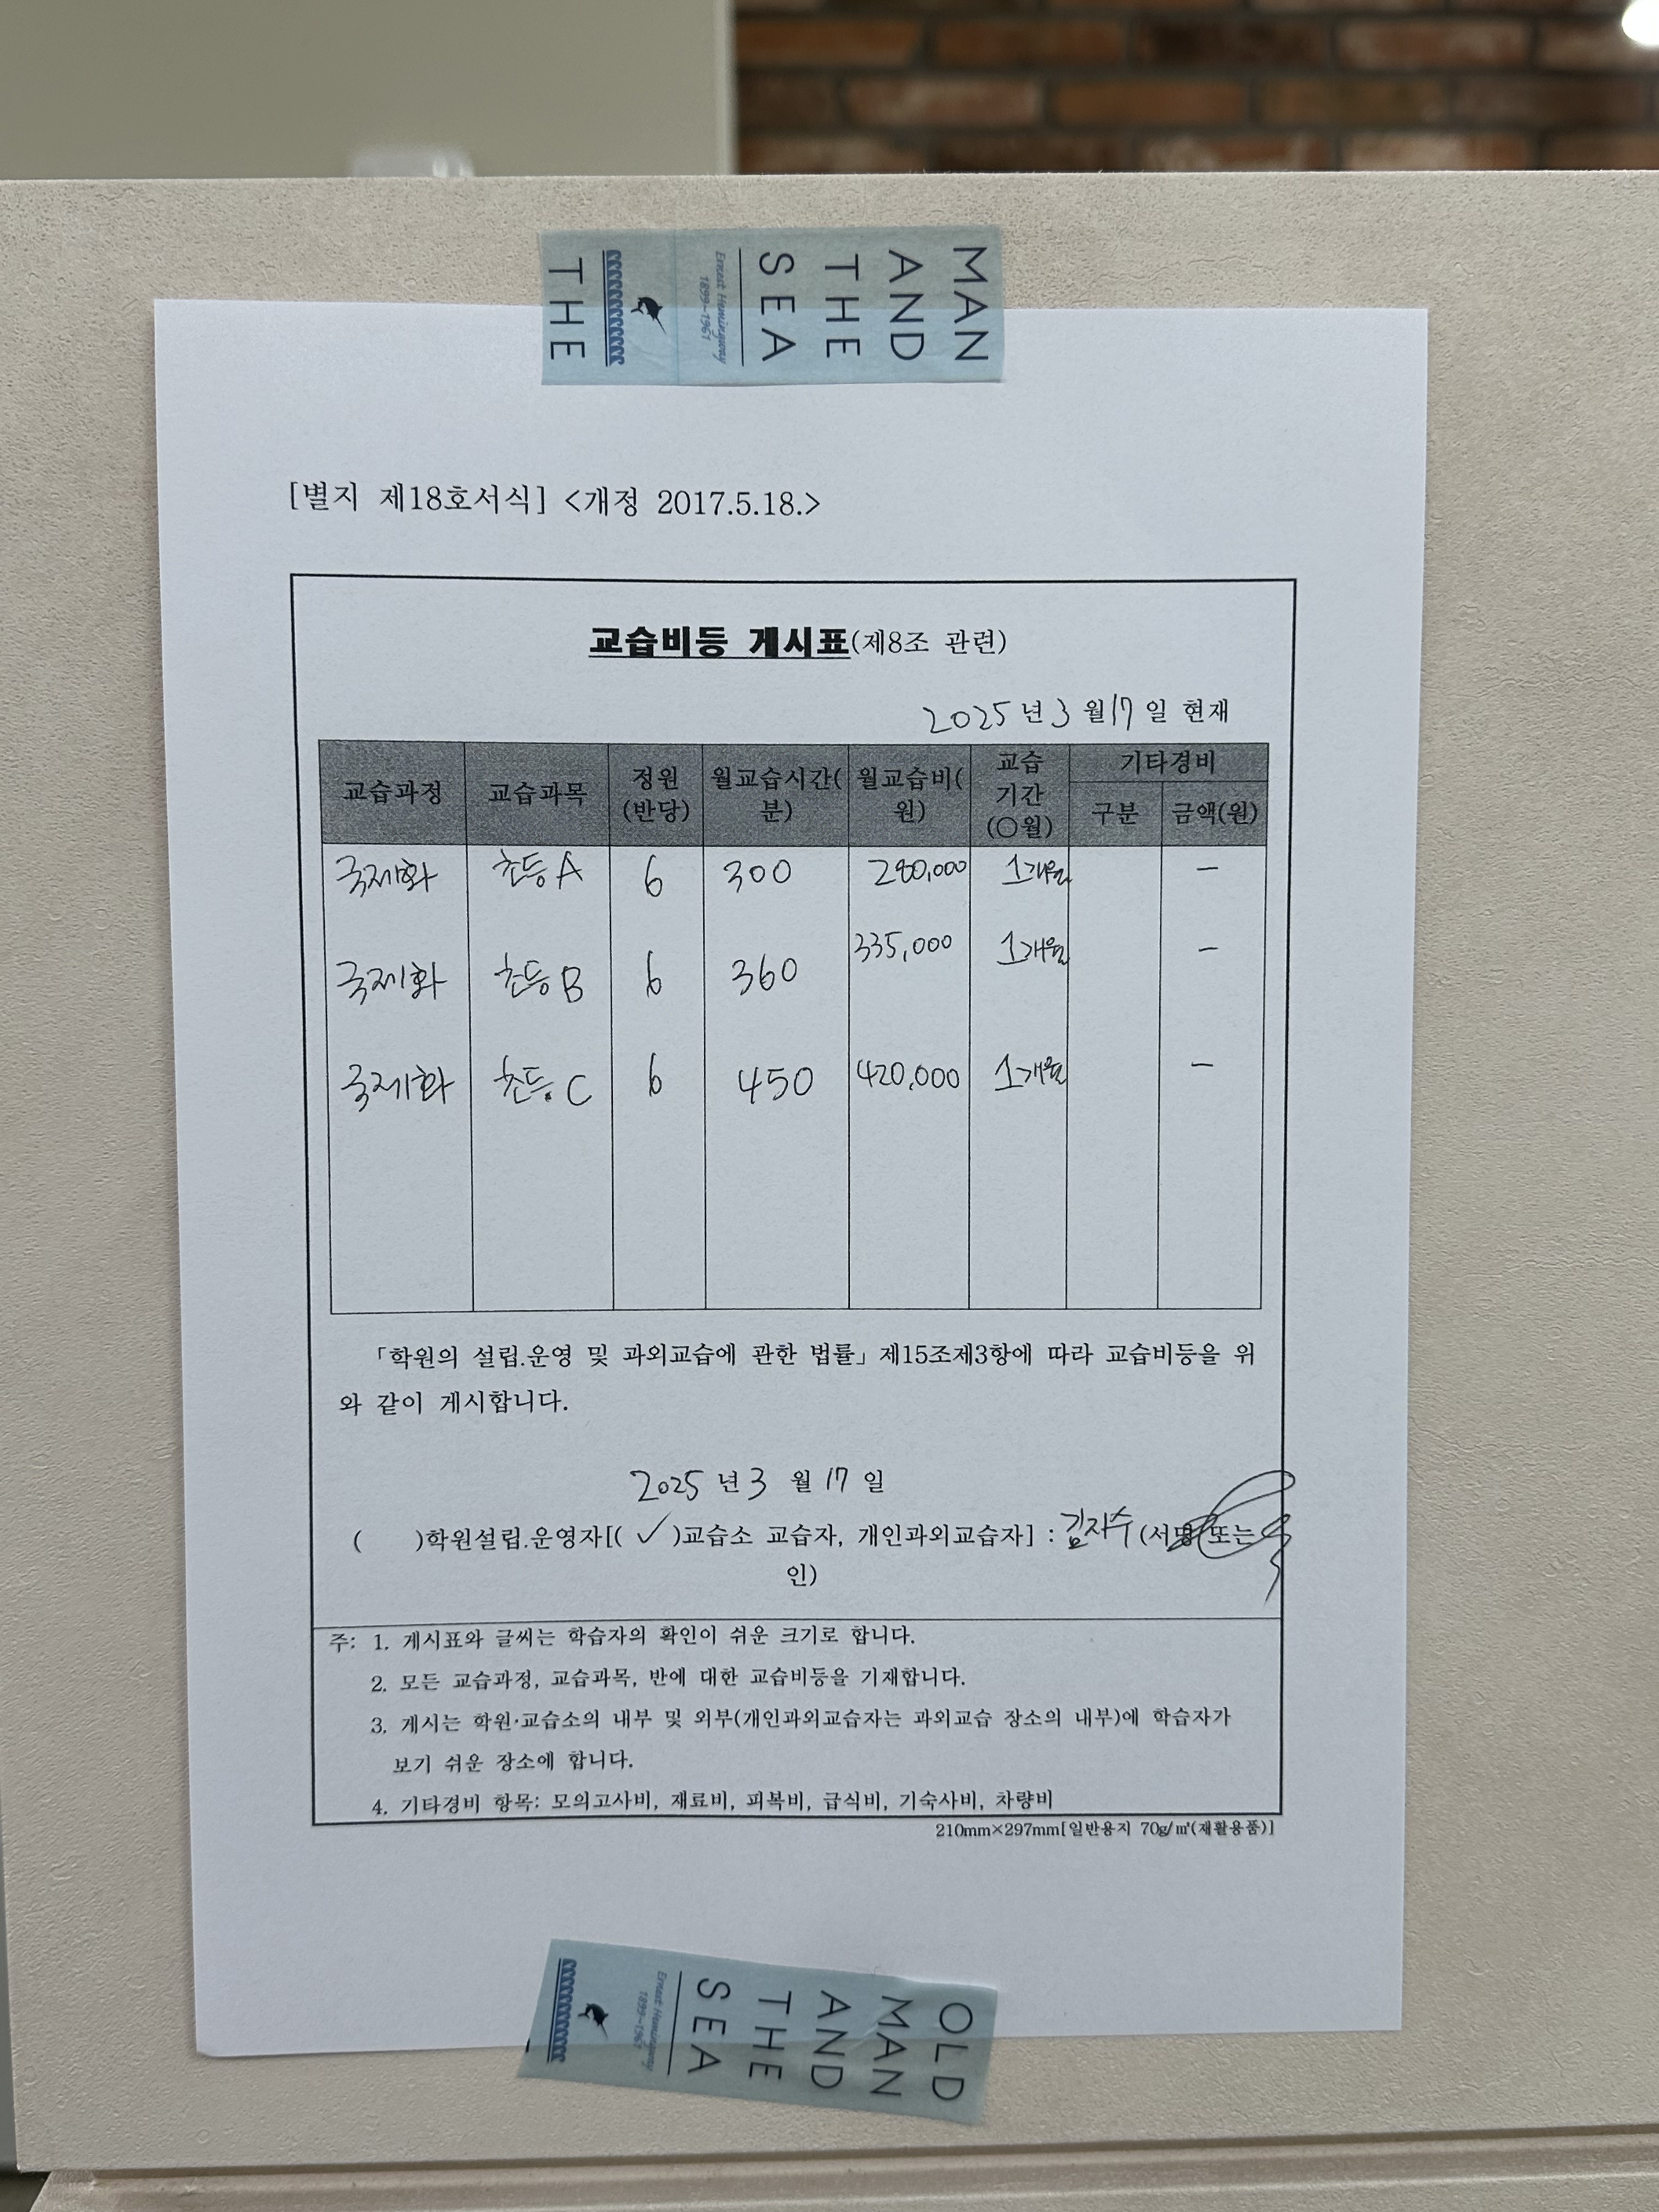 MAN
AND
THE
SEA
Ernest Hemingway
1899~1961
THE
[별지 제18호서식] <개정 2017.5.18.>
교습비등 게시표(제8조 관련)
2025 년 3 월 17 일 현재
교습과정 교습과목 정원(반당) 월교습시간(분) 월교습비(원) 교습기간(○월) 기타경비 구분 금액(원)
국제화 초등A 6 300 280,000 1개월 -
국제화 초등B 6 360 335,000 1개월 -
국제화 초등C 6 450 420,000 1개월 -
「학원의 설립.운영 및 과외교습에 관한 법률」제15조제3항에 따라 교습비등을 위
와 같이 게시합니다.
2025 년 3 월 17 일
( )학원설립.운영자[( ✓ )교습소 교습자, 개인과외교습자] : 김지수 (서명 또는
인)
주: 1. 게시표와 글씨는 학습자의 확인이 쉬운 크기로 합니다.
2. 모든 교습과정, 교습과목, 반에 대한 교습비등을 기재합니다.
3. 게시는 학원·교습소의 내부 및 외부(개인과외교습자는 과외교습 장소의 내부)에 학습자가
보기 쉬운 장소에 합니다.
4. 기타경비 항목: 모의고사비, 재료비, 피복비, 급식비, 기숙사비, 차량비
210mm×297mm[일반용지 70g/㎡(재활용품)]
OLD
MAN
AND
THE
SEA
Ernest Hemingway
1899~1961